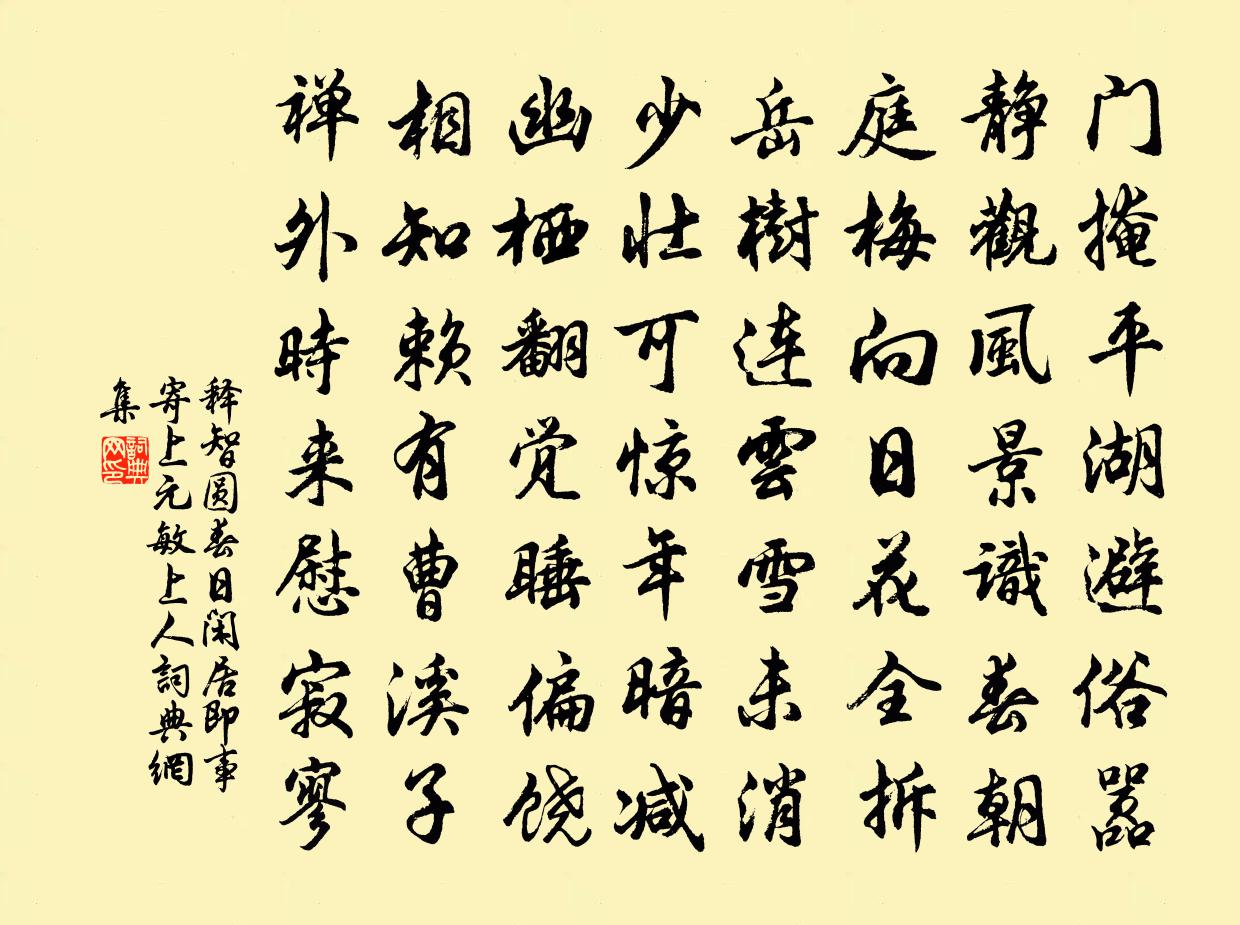 门掩平湖避俗嚣
静觀風景識春朝
庭梅向日花全拆
岳樹连雲雪未消
少壮可惊年暗减
幽栖翻觉睡偏饶
相知赖有曹溪子
禅外時来慰寂寥
释智圆春日闲居即事
寄上元敏上人詞典網
集
詞典网印